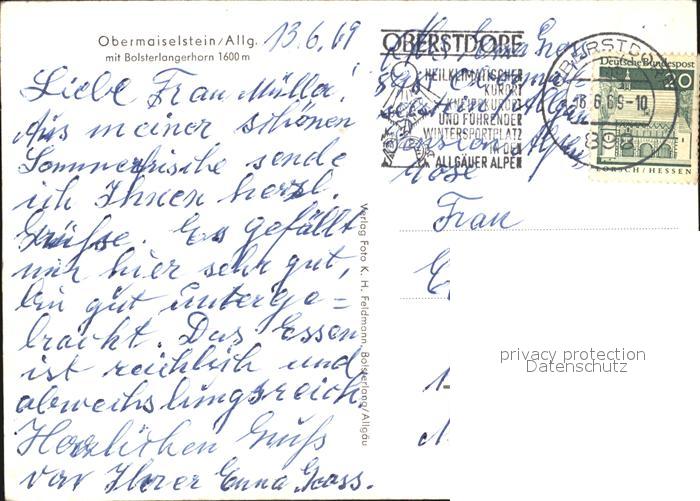 Obermaiselstein/Allg.
mit Bolsterlangerhorn 1600 m
13.6.69
Liebe Frau Müller!
Aus meiner schönen
Sommerfrische sende
ich Ihnen herzl.
Grüße. Es gefällt
mir hier sehr gut,
bin gut unterge=
bracht. Das Essen
ist reichlich und
abwechslungsreich.
Herzlichen Gruß
von Ihrer Erna
Verlag Foto K. H. Feldmann, Bolsterlang/Allgäu
OBERSTDORF
HEILKLIMATISCHER
KURORT
KNEIPPKURORT
UND FÜHRENDER
WINTERSPORTPLATZ
IN DEN
ALLGÄUER ALPEN
OBERSTDORF
16.6.69-10
898
Deutsche Bundespost
20
LORSCH/HESSEN
Frau
privacy protection
Datenschutz